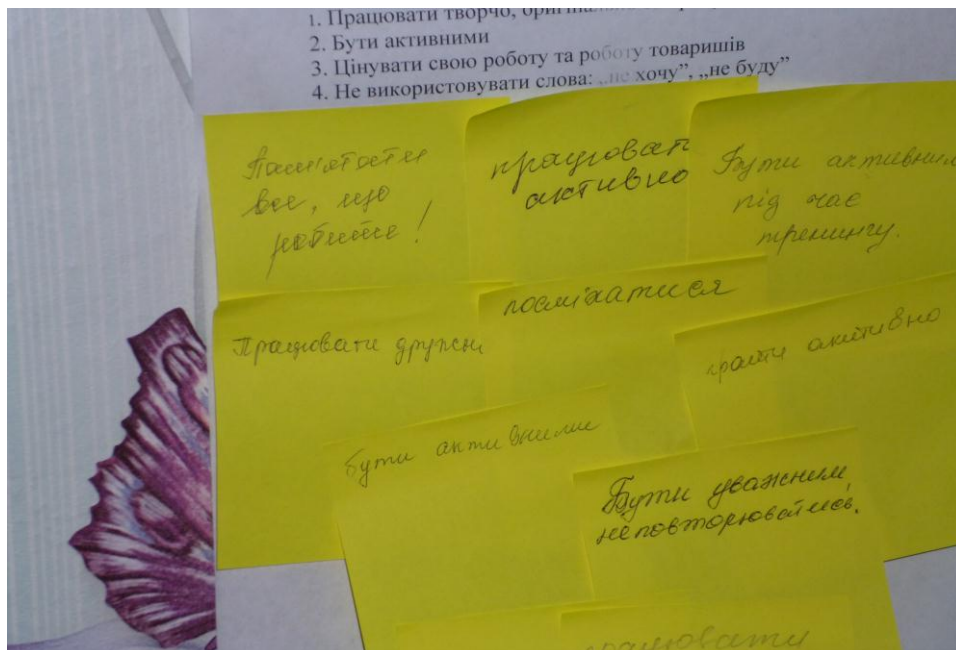 1. Працювати творчо,
2. Бути активними
3. Цінувати свою роботу та роботу товаришів
4. Не використовувати слова: „не хочу”, „не буду”
Пам'ятати
все, що
робите!
працюват
активно
Бути активним
під час
тренингу.
Працювати дружн
посміхатися
активно
бути активними
Бути уважним,
не повторюватись.
працювати